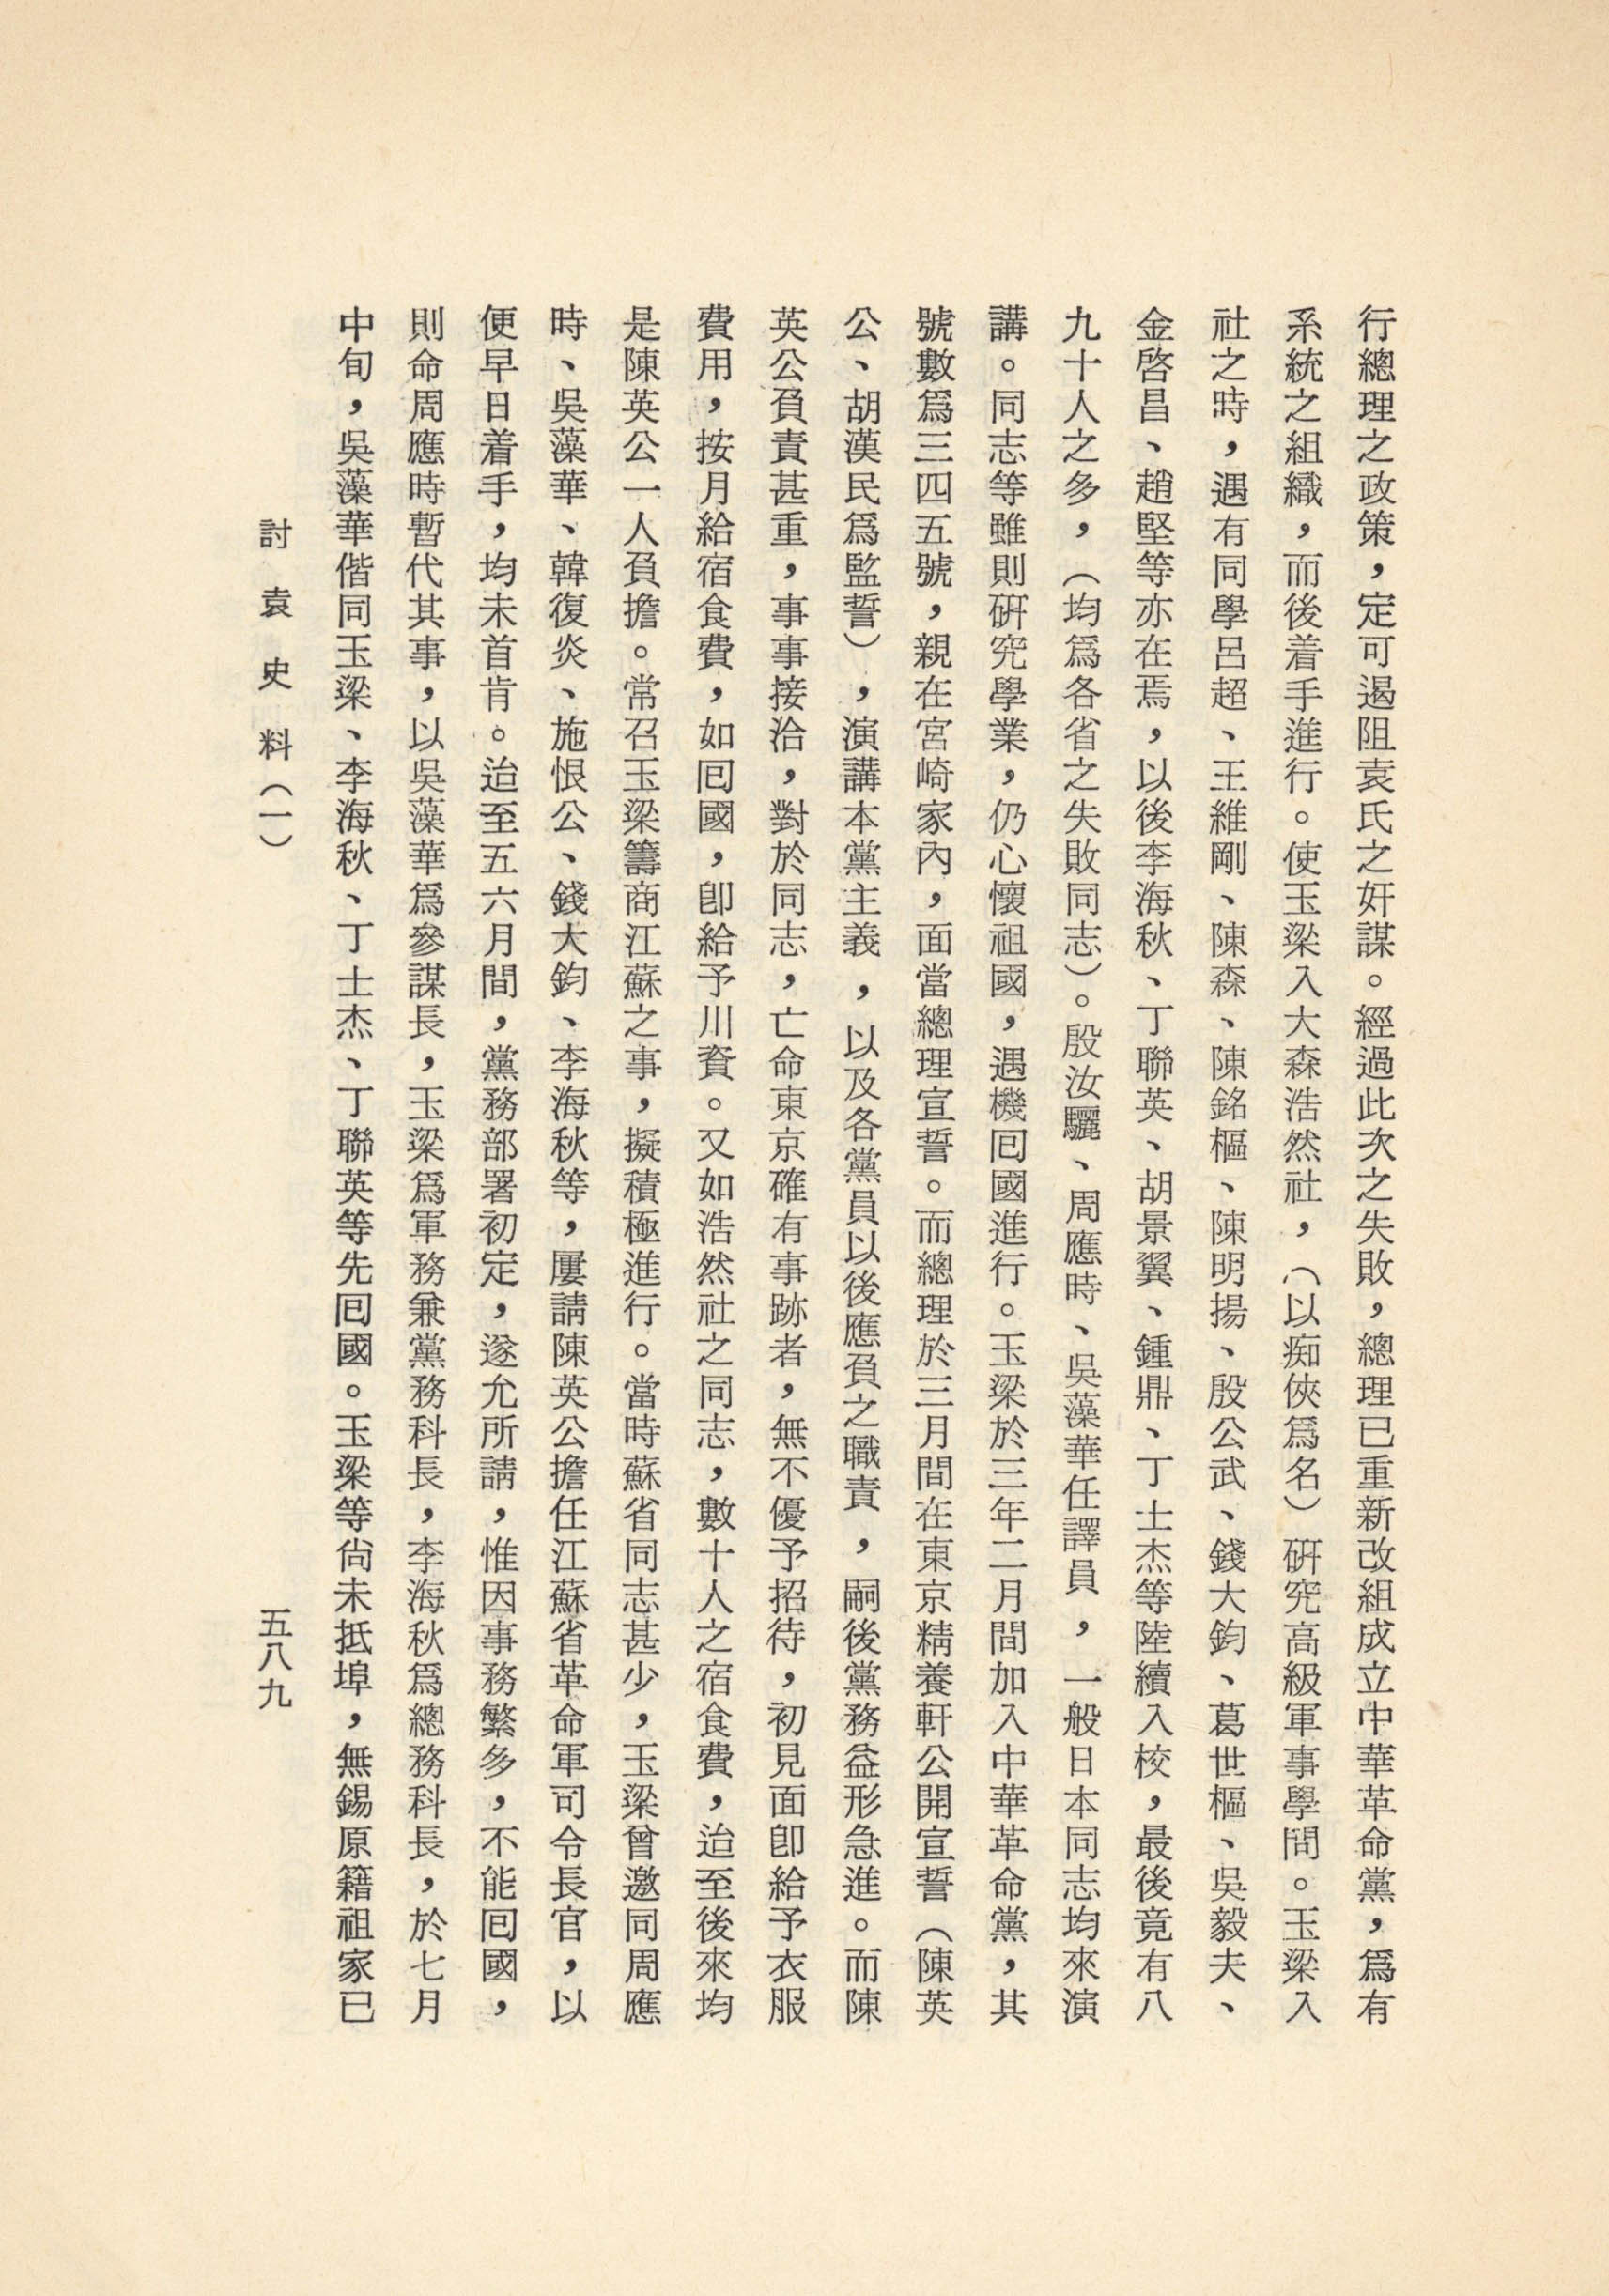 行總理之政策，定可遏阻袁氏之奸謀。經過此次之失敗，總理已重新改組成立中華革命黨，爲有
系統之組織，而後着手進行。使玉梁入大森浩然社，（以痴俠爲名）研究高級軍事學問。玉梁入
社之時，遇有同學呂超、王維剛、陳森、陳銘樞、陳明揚、殷公武、錢大鈞、葛世樞、吳毅夫、
金啓昌、趙堅等亦在焉，以後李海秋、丁聯英、胡景翼、鍾鼎、丁士杰等陸續入校，最後竟有八
九十人之多，（均爲各省之失敗同志）。殷汝驪、周應時、吳藻華任譯員，一般日本同志均來演
講。同志等雖則研究學業，仍心懷祖國，遇機囘國進行。玉梁於三年二月間加入中華革命黨，其
號數爲三四五號，親在宮崎家內，面當總理宣誓。而總理於三月間在東京精養軒公開宣誓（陳英
公、胡漢民爲監誓），演講本黨主義，以及各黨員以後應負之職責，嗣後黨務益形急進。而陳
英公負責甚重，事事接洽，對於同志，亡命東京確有事跡者，無不優予招待，初見面卽給予衣服
費用，按月給宿食費，如囘國，卽給予川資。又如浩然社之同志，數十人之宿食費，迨至後來均
是陳英公一人負擔。常召玉梁籌商江蘇之事，擬積極進行。當時蘇省同志甚少，玉梁曾邀同周應
時、吳藻華、韓復炎、施恨公、錢大鈞、李海秋等，屢請陳英公擔任江蘇省革命軍司令長官，以
便早日着手，均未首肯。迨至五六月間，黨務部署初定，遂允所請，惟因事務繁多，不能囘國，
則命周應時暫代其事，以吳藻華爲參謀長，玉梁爲軍務兼黨務科長，李海秋爲總務科長，於七月
中旬，吳藻華偕同玉梁、李海秋、丁士杰、丁聯英等先囘國。玉梁等尙未抵埠，無錫原籍祖家已
討袁史料（一）
五八九